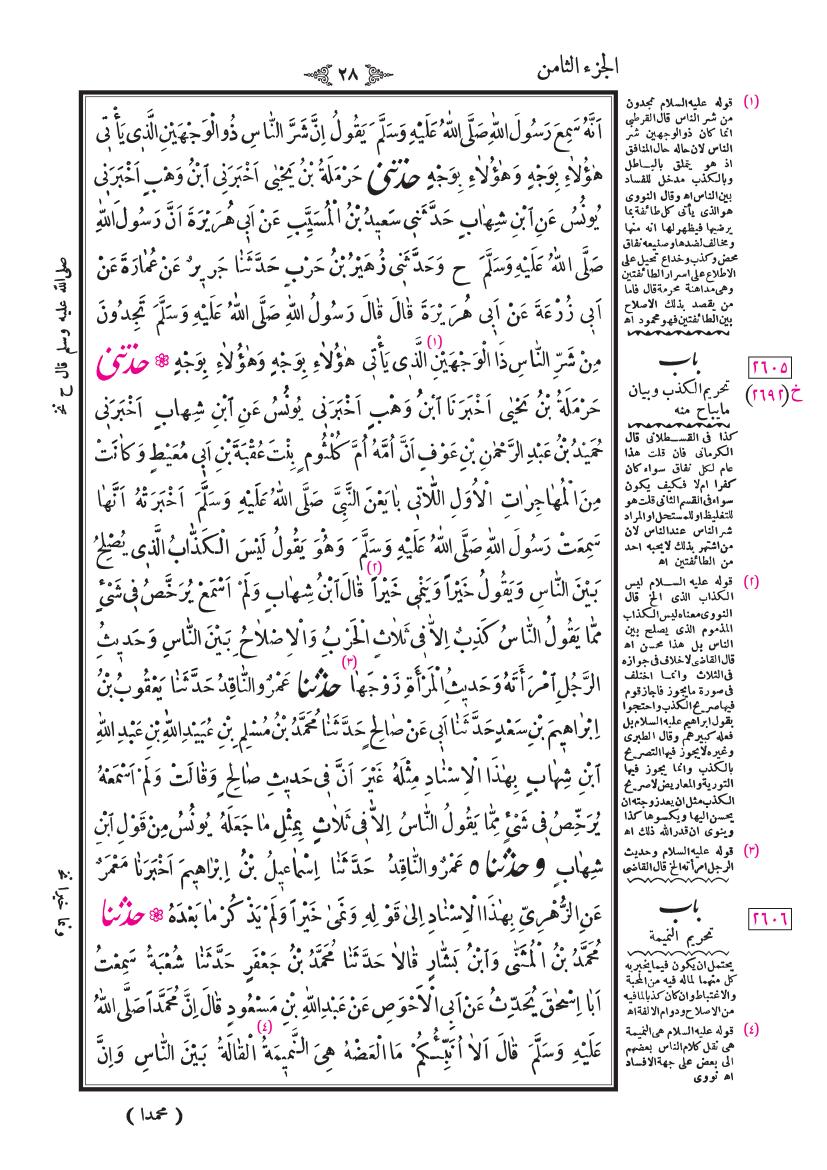 الجزء الثامن
٢٨
اَنَّهُ سَمِعَ رَسُولَ اللهِ صَلَّى اللهُ عَلَيْهِ وَسَلَّمَ يَقُولُ اِنَّ شَرَّ النَّاسِ ذُو الْوَجْهَيْنِ الَّذِى يَأْتِى
هٰؤُلَاءِ بِوَجْهٍ وَهٰؤُلَاءِ بِوَجْهٍ حَدَّثَنِى حَرْمَلَةُ بْنُ يَحْيٰى اَخْبَرَنِى ابْنُ وَهْبٍ اَخْبَرَنِى
يُونُسُ عَنِ ابْنِ شِهَابٍ حَدَّثَنِى سَعِيدُ بْنُ الْمُسَيَّبِ عَنْ اَبِى هُرَيْرَةَ اَنَّ رَسُولَ اللهِ
صَلَّى اللهُ عَلَيْهِ وَسَلَّمَ ح وَحَدَّثَنِى زُهَيْرُ بْنُ حَرْبٍ حَدَّثَنَا جَرِيرٌ عَنْ عُمَارَةَ عَنْ
اَبِى زُرْعَةَ عَنْ اَبِى هُرَيْرَةَ قَالَ قَالَ رَسُولُ اللهِ صَلَّى اللهُ عَلَيْهِ وَسَلَّمَ تَجِدُونَ
مِنْ شَرِّ النَّاسِ ذَا الْوَجْهَيْنِ (١) الَّذِى يَأْتِى هٰؤُلَاءِ بِوَجْهٍ وَهٰؤُلَاءِ بِوَجْهٍ ❁ حَدَّثَنِى
حَرْمَلَةُ بْنُ يَحْيٰى اَخْبَرَنَا ابْنُ وَهْبٍ اَخْبَرَنِى يُونُسُ عَنِ ابْنِ شِهَابٍ اَخْبَرَنِى
حُمَيْدُ بْنُ عَبْدِ الرَّحْمٰنِ بْنِ عَوْفٍ اَنَّ اُمَّهُ اُمَّ كُلْثُومٍ بِنْتَ عُقْبَةَ بْنِ اَبِى مُعَيْطٍ وَكَانَتْ
مِنَ الْمُهَاجِرَاتِ الْاُوَلِ اللَّاتِى بَايَعْنَ النَّبِىَّ صَلَّى اللهُ عَلَيْهِ وَسَلَّمَ اَخْبَرَتْهُ اَنَّهَا
سَمِعَتْ رَسُولَ اللهِ صَلَّى اللهُ عَلَيْهِ وَسَلَّمَ وَهُوَ يَقُولُ لَيْسَ الْكَذَّابُ الَّذِى يُصْلِحُ
بَيْنَ النَّاسِ وَيَقُولُ خَيْراً وَيَنْمِى خَيْراً (٢) قَالَ ابْنُ شِهَابٍ وَلَمْ اَسْمَعْ يُرَخَّصُ فِى شَىْءٍ
مِمَّا يَقُولُ النَّاسُ كَذِبٌ اِلَّا فِى ثَلَاثٍ الْحَرْبُ وَالْاِصْلَاحُ بَيْنَ النَّاسِ وَحَدِيثُ
الرَّجُلِ امْرَأَتَهُ وَحَدِيثُ الْمَرْأَةِ زَوْجَهَا (٣) حَدَّثَنَا عَمْرٌو النَّاقِدُ حَدَّثَنَا يَعْقُوبُ بْنُ
اِبْرٰاهِيمَ بْنِ سَعْدٍ حَدَّثَنَا اَبِى عَنْ صَالِحٍ حَدَّثَنَا مُحَمَّدُ بْنُ مُسْلِمِ بْنِ عُبَيْدِ اللهِ بْنِ عَبْدِ اللهِ
ابْنِ شِهَابٍ بِهٰذَا الْاِسْنَادِ مِثْلَهُ غَيْرَ اَنَّ فِى حَدِيثِ صَالِحٍ وَقَالَتْ وَلَمْ اَسْمَعْهُ
يُرَخِّصُ فِى شَىْءٍ مِمَّا يَقُولُ النَّاسُ اِلَّا فِى ثَلَاثٍ بِمِثْلِ مَا جَعَلَهُ يُونُسُ مِنْ قَوْلِ ابْنِ
شِهَابٍ وَحَدَّثَنَاه عَمْرٌو النَّاقِدُ حَدَّثَنَا اِسْمَاعِيلُ بْنُ اِبْرٰاهِيمَ اَخْبَرَنَا مَعْمَرٌ
عَنِ الزُّهْرِىِّ بِهٰذَا الْاِسْنَادِ اِلٰى قَوْلِهِ وَنَمٰى خَيْراً وَلَمْ يَذْكُرْ مَا بَعْدَهُ ❁ حَدَّثَنَا
مُحَمَّدُ بْنُ الْمُثَنّٰى وَابْنُ بَشَّارٍ قَالَا حَدَّثَنَا مُحَمَّدُ بْنُ جَعْفَرٍ حَدَّثَنَا شُعْبَةُ سَمِعْتُ
اَبَا اِسْحٰقَ يُحَدِّثُ عَنْ اَبِى الْاَحْوَصِ عَنْ عَبْدِ اللهِ بْنِ مَسْعُودٍ قَالَ اِنَّ مُحَمَّداً صَلَّى اللهُ
عَلَيْهِ وَسَلَّمَ قَالَ اَلَا اُنَبِّئُكُمْ مَا الْعَضْهُ هِىَ النَّمِيمَةُ (٤) الْقَالَةُ بَيْنَ النَّاسِ وَاِنَّ
( محمدا )
(١) قوله عليه السلام تجدون
من شر الناس قال القرطبى
انما كان ذو الوجهين شر
الناس لان حاله حال المنافق
اذ هو يتملق بالباطل
وبالكذب مدخل للفساد
بين الناس اه وقال النووى
هو الذى يأتى كل طائفة بما
يرضيها فيظهر لها انه منها
ومخالف لضدها وصنيعه نفاق
محض وكذب وخداع تحيل على
الاطلاع على اسرار الطائفتين
وهى مداهنة محرمة قال فاما
من يقصد بذلك الاصلاح
بين الطائفتين فهو محمود اه
باب
تحريم الكذب وبيان
ما يباح منه
٢٦٠٥
خ (٢٦٩٢)
كذا فى القسطلانى قال
الكرمانى فان قلت هذا
عام لكل نفاق سواء كان
كفرا ام لا فكيف يكون
سواء فى القسم الثانى قلت هو
للتغليظ او للمستحل او المراد
شر الناس عند الناس لان
من اشتهر بذلك لا يحبه احد
من الطائفتين اه
(٢) قوله عليه السلام ليس
الكذاب الذى الخ قال
النووى معناه ليس الكذاب
المذموم الذى يصلح بين
الناس بل هذا محسن اه
قال القاضى لا خلاف فى جوازه
فى الثلاث وانما اختلف
فى صورة ما يجوز فاجاز قوم
فيها صريح الكذب واحتجوا
بقول ابراهيم عليه السلام بل
فعله كبيرهم وقال الطبرى
وغيره لا يجوز فيها التصريح
بالكذب وانما يجوز فيها
التورية والمعاريض لا صريح
الكذب مثل ان يعد زوجته ان
يحسن اليها ويكسوها كذا
وينوى ان قدر الله ذلك اه
(٣) قوله عليه السلام وحديث
الرجل امرأته الخ قال القاضى
باب
تحريم النميمة
٢٦٠٦
يحتمل ان يكون فيما يخبر به
كل منهما لماله فيه من المحبة
والاغتباط وان كان كذبا لما فيه
من الاصلاح ودوام الالفة اه
(٤) قوله عليه السلام هى النميمة
هى نقل كلام الناس بعضهم
الى بعض على جهة الافساد
اه نووى
صلى الله عليه وسلم قال ح نخ
ونما خيرا نخ